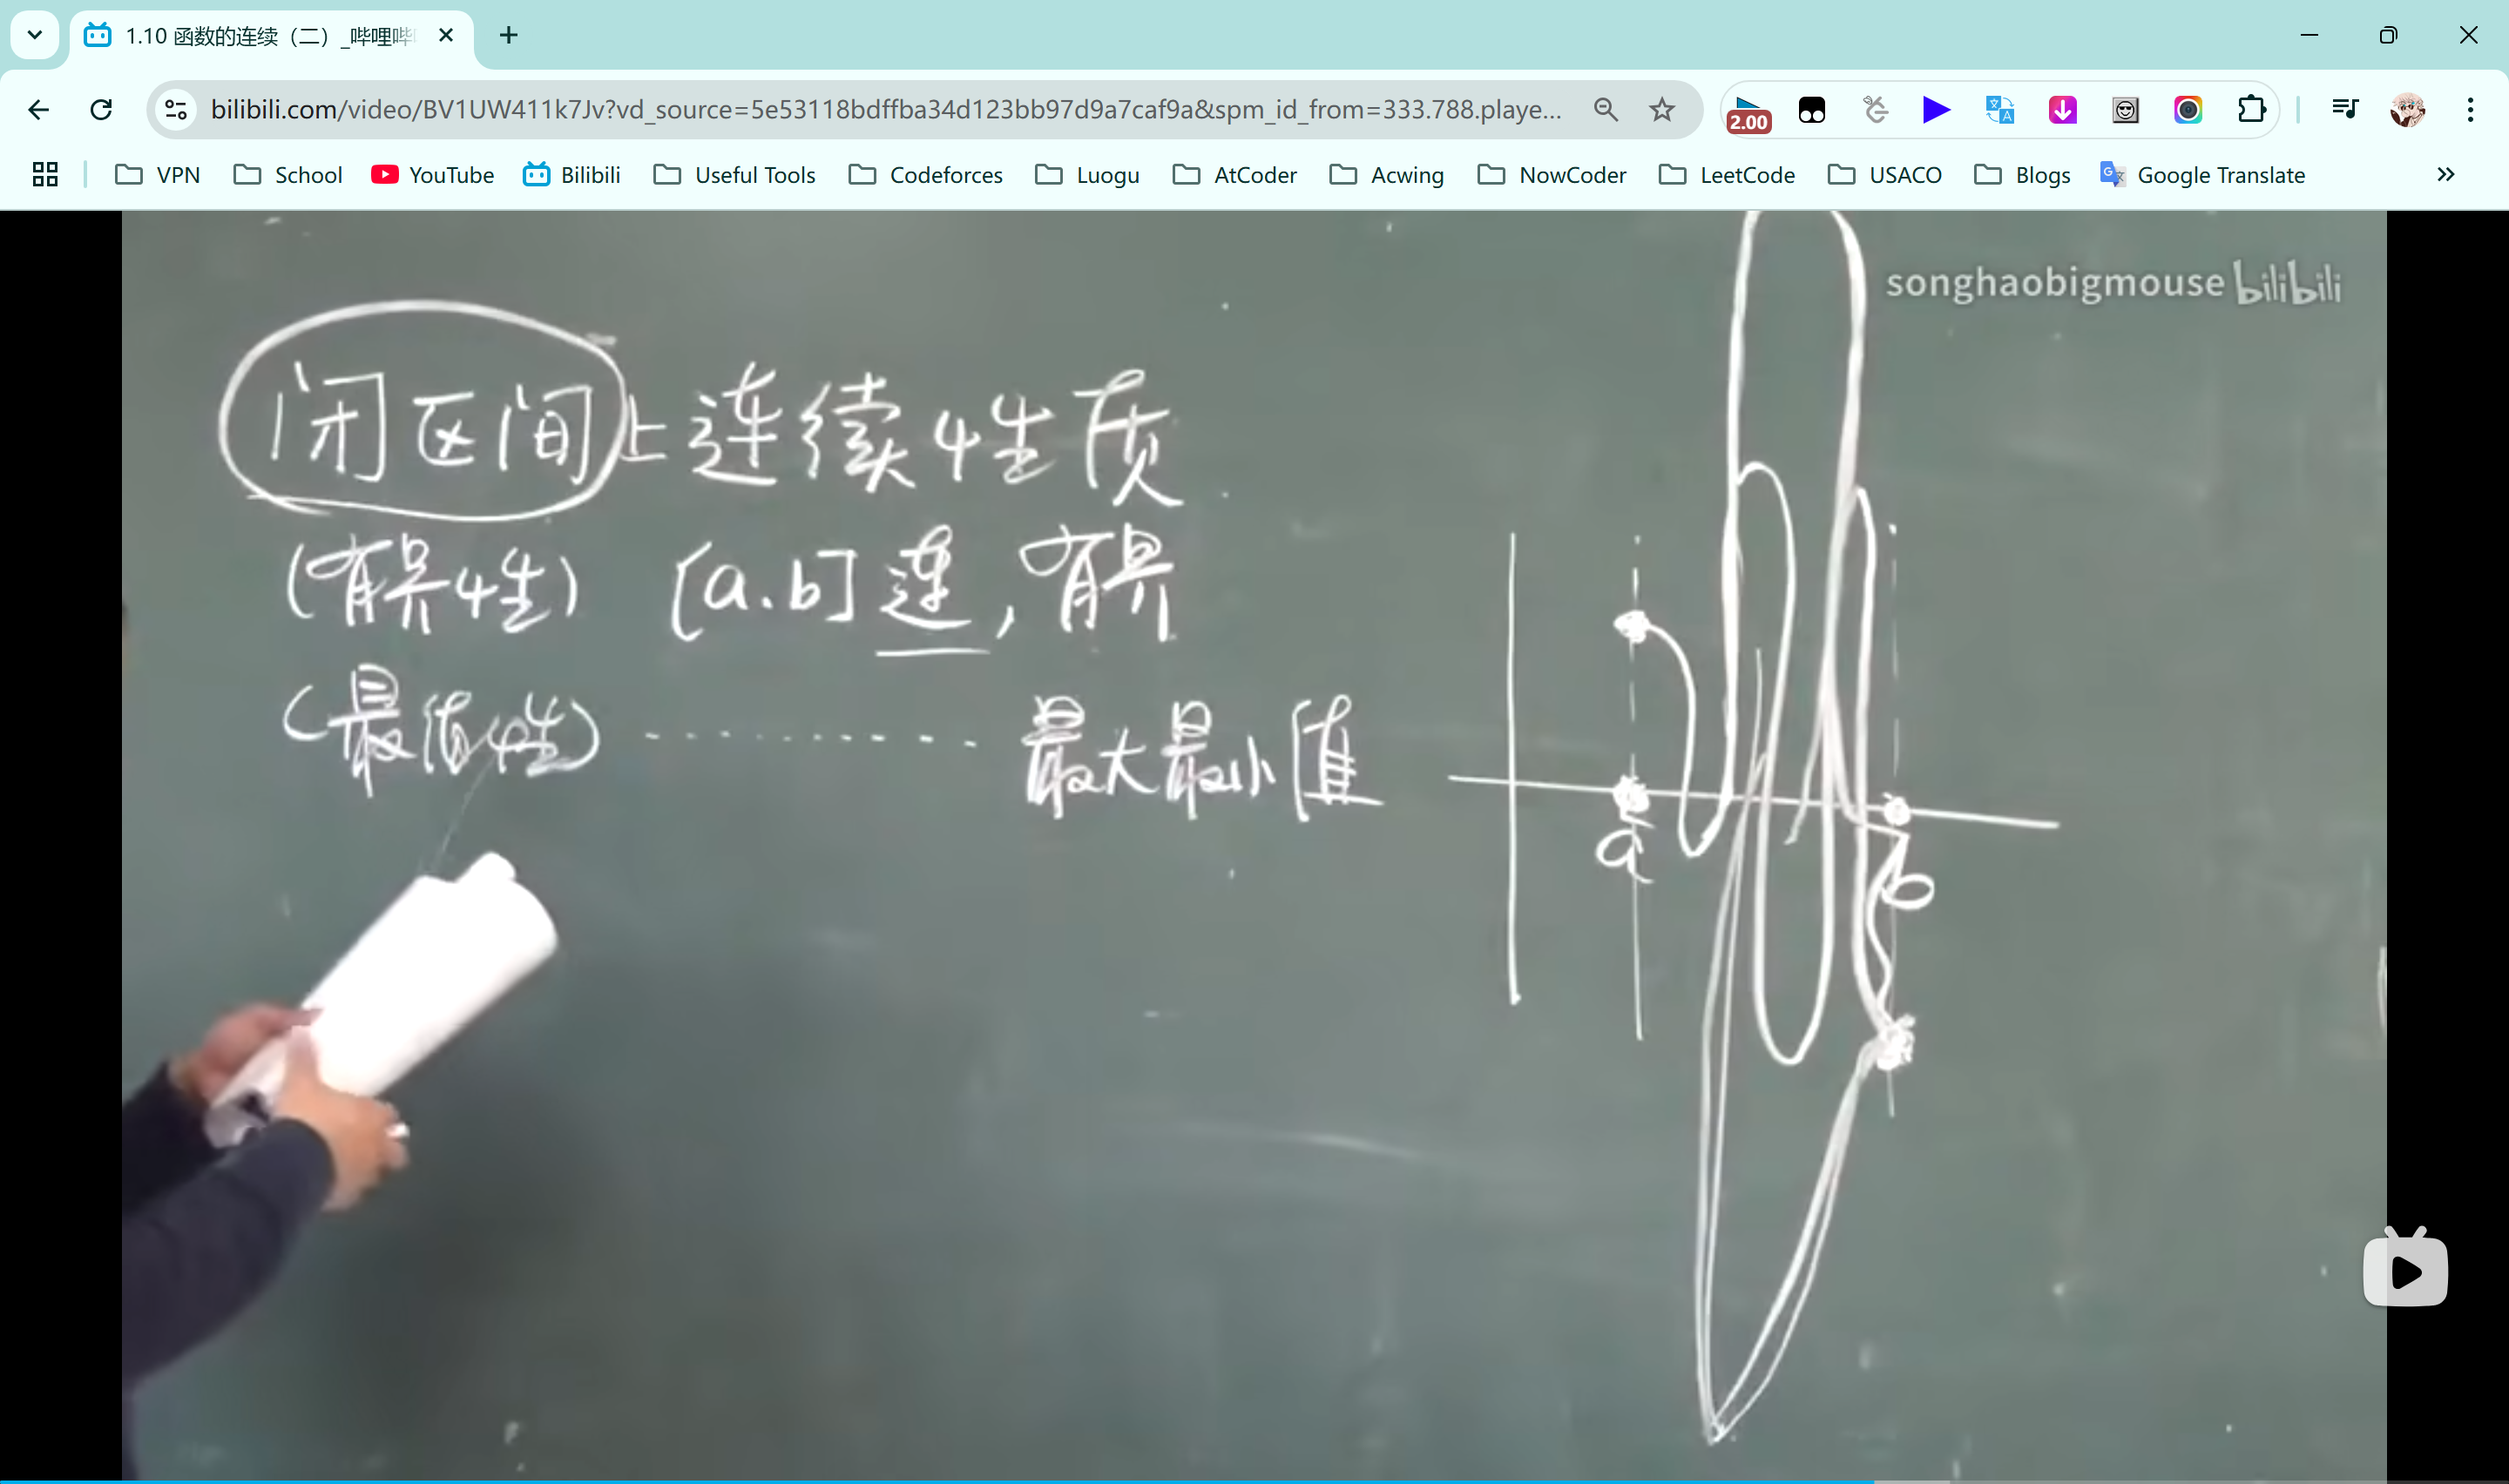 1.10 函数的连续（二）_哔哩哔
bilibili.com/video/BV1UW411k7Jv?vd_source=5e53118bdffba34d123bb97d9a7caf9a&spm_id_from=333.788.playe...
2.00
VPN School YouTube Bilibili Useful Tools Codeforces Luogu AtCoder Acwing NowCoder LeetCode USACO Blogs Google Translate
songhaobigmouse bilibili
闭区间上连续性质
(有界性) [a.b]连,有界
(最值性) ········· 最大最小值
a
b